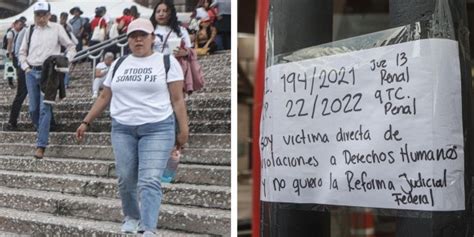 #TODOS
SOMOS PJF
194/2021 Juz 13
Penal
P. 22/2022 9 TC.
Penal
Soy victima directa de
violaciones a Derechos Humanos
y no quiero la Reforma Judicial
Federal